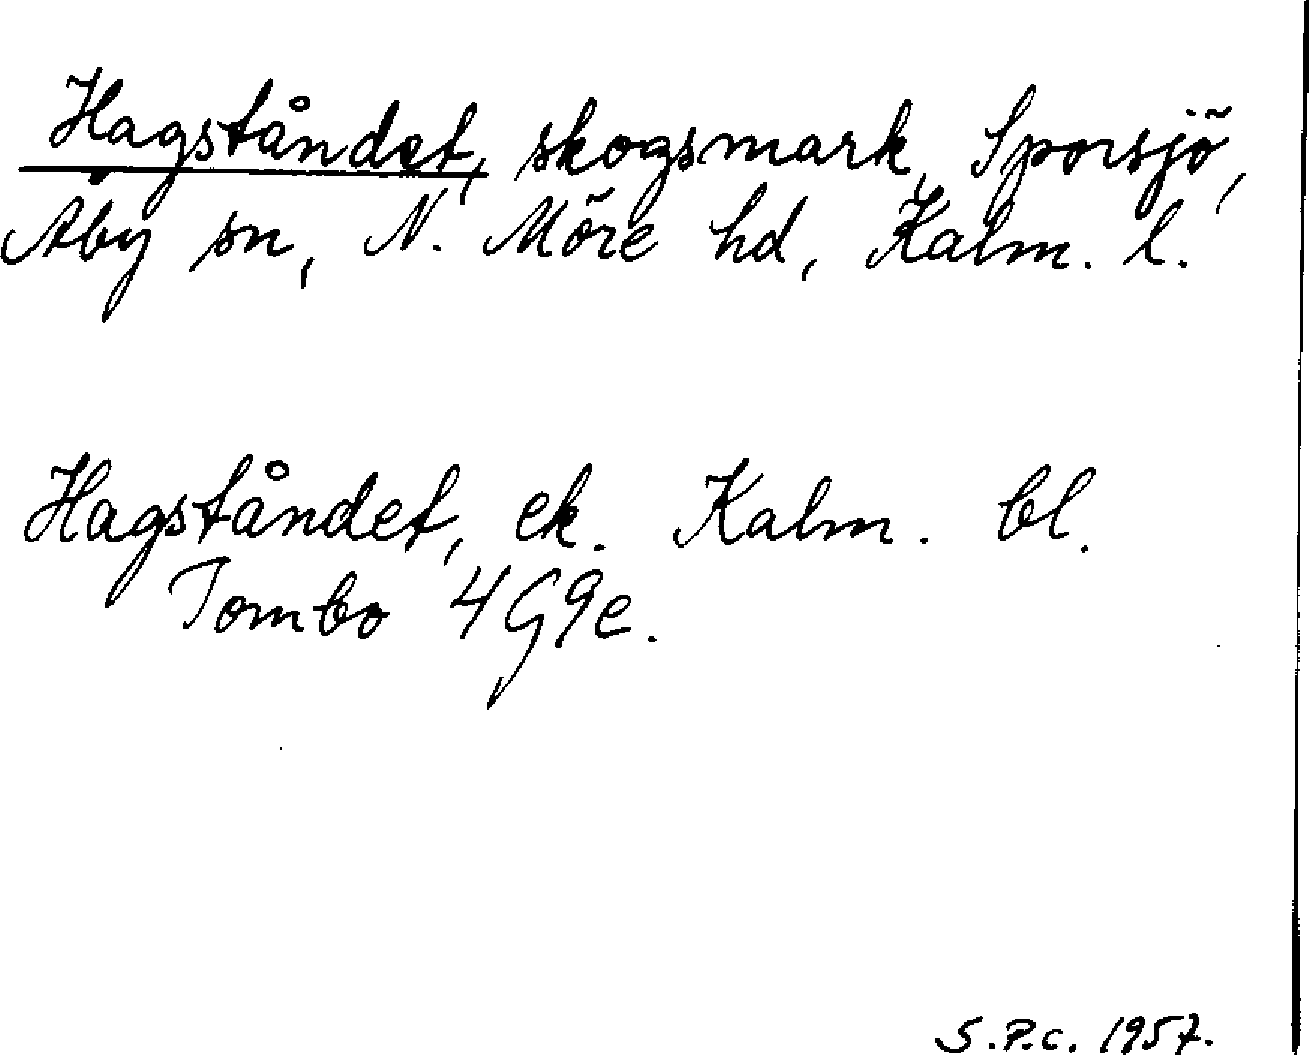 Hagståndet, skogsmark, Sporsjö,
Åby sn, N. Möre hd, Kalm. l.
Hagståndet, ek. Kalm. bl.
Tombo 4G9e.
S.P.C. 1957.